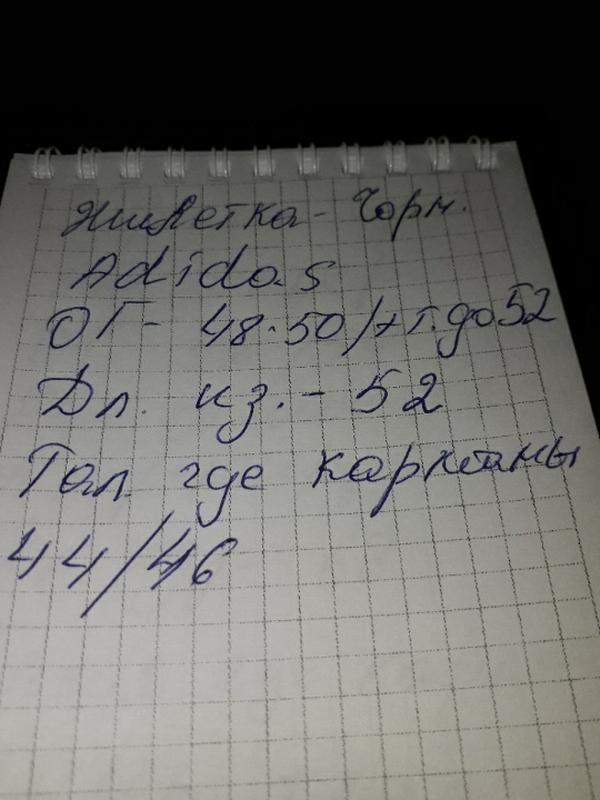 Жилетка - Чорн.
Adidas
ОГ - 48-50/+т.до 52
Дл. из. - 52
Тал. где карманы
44/46